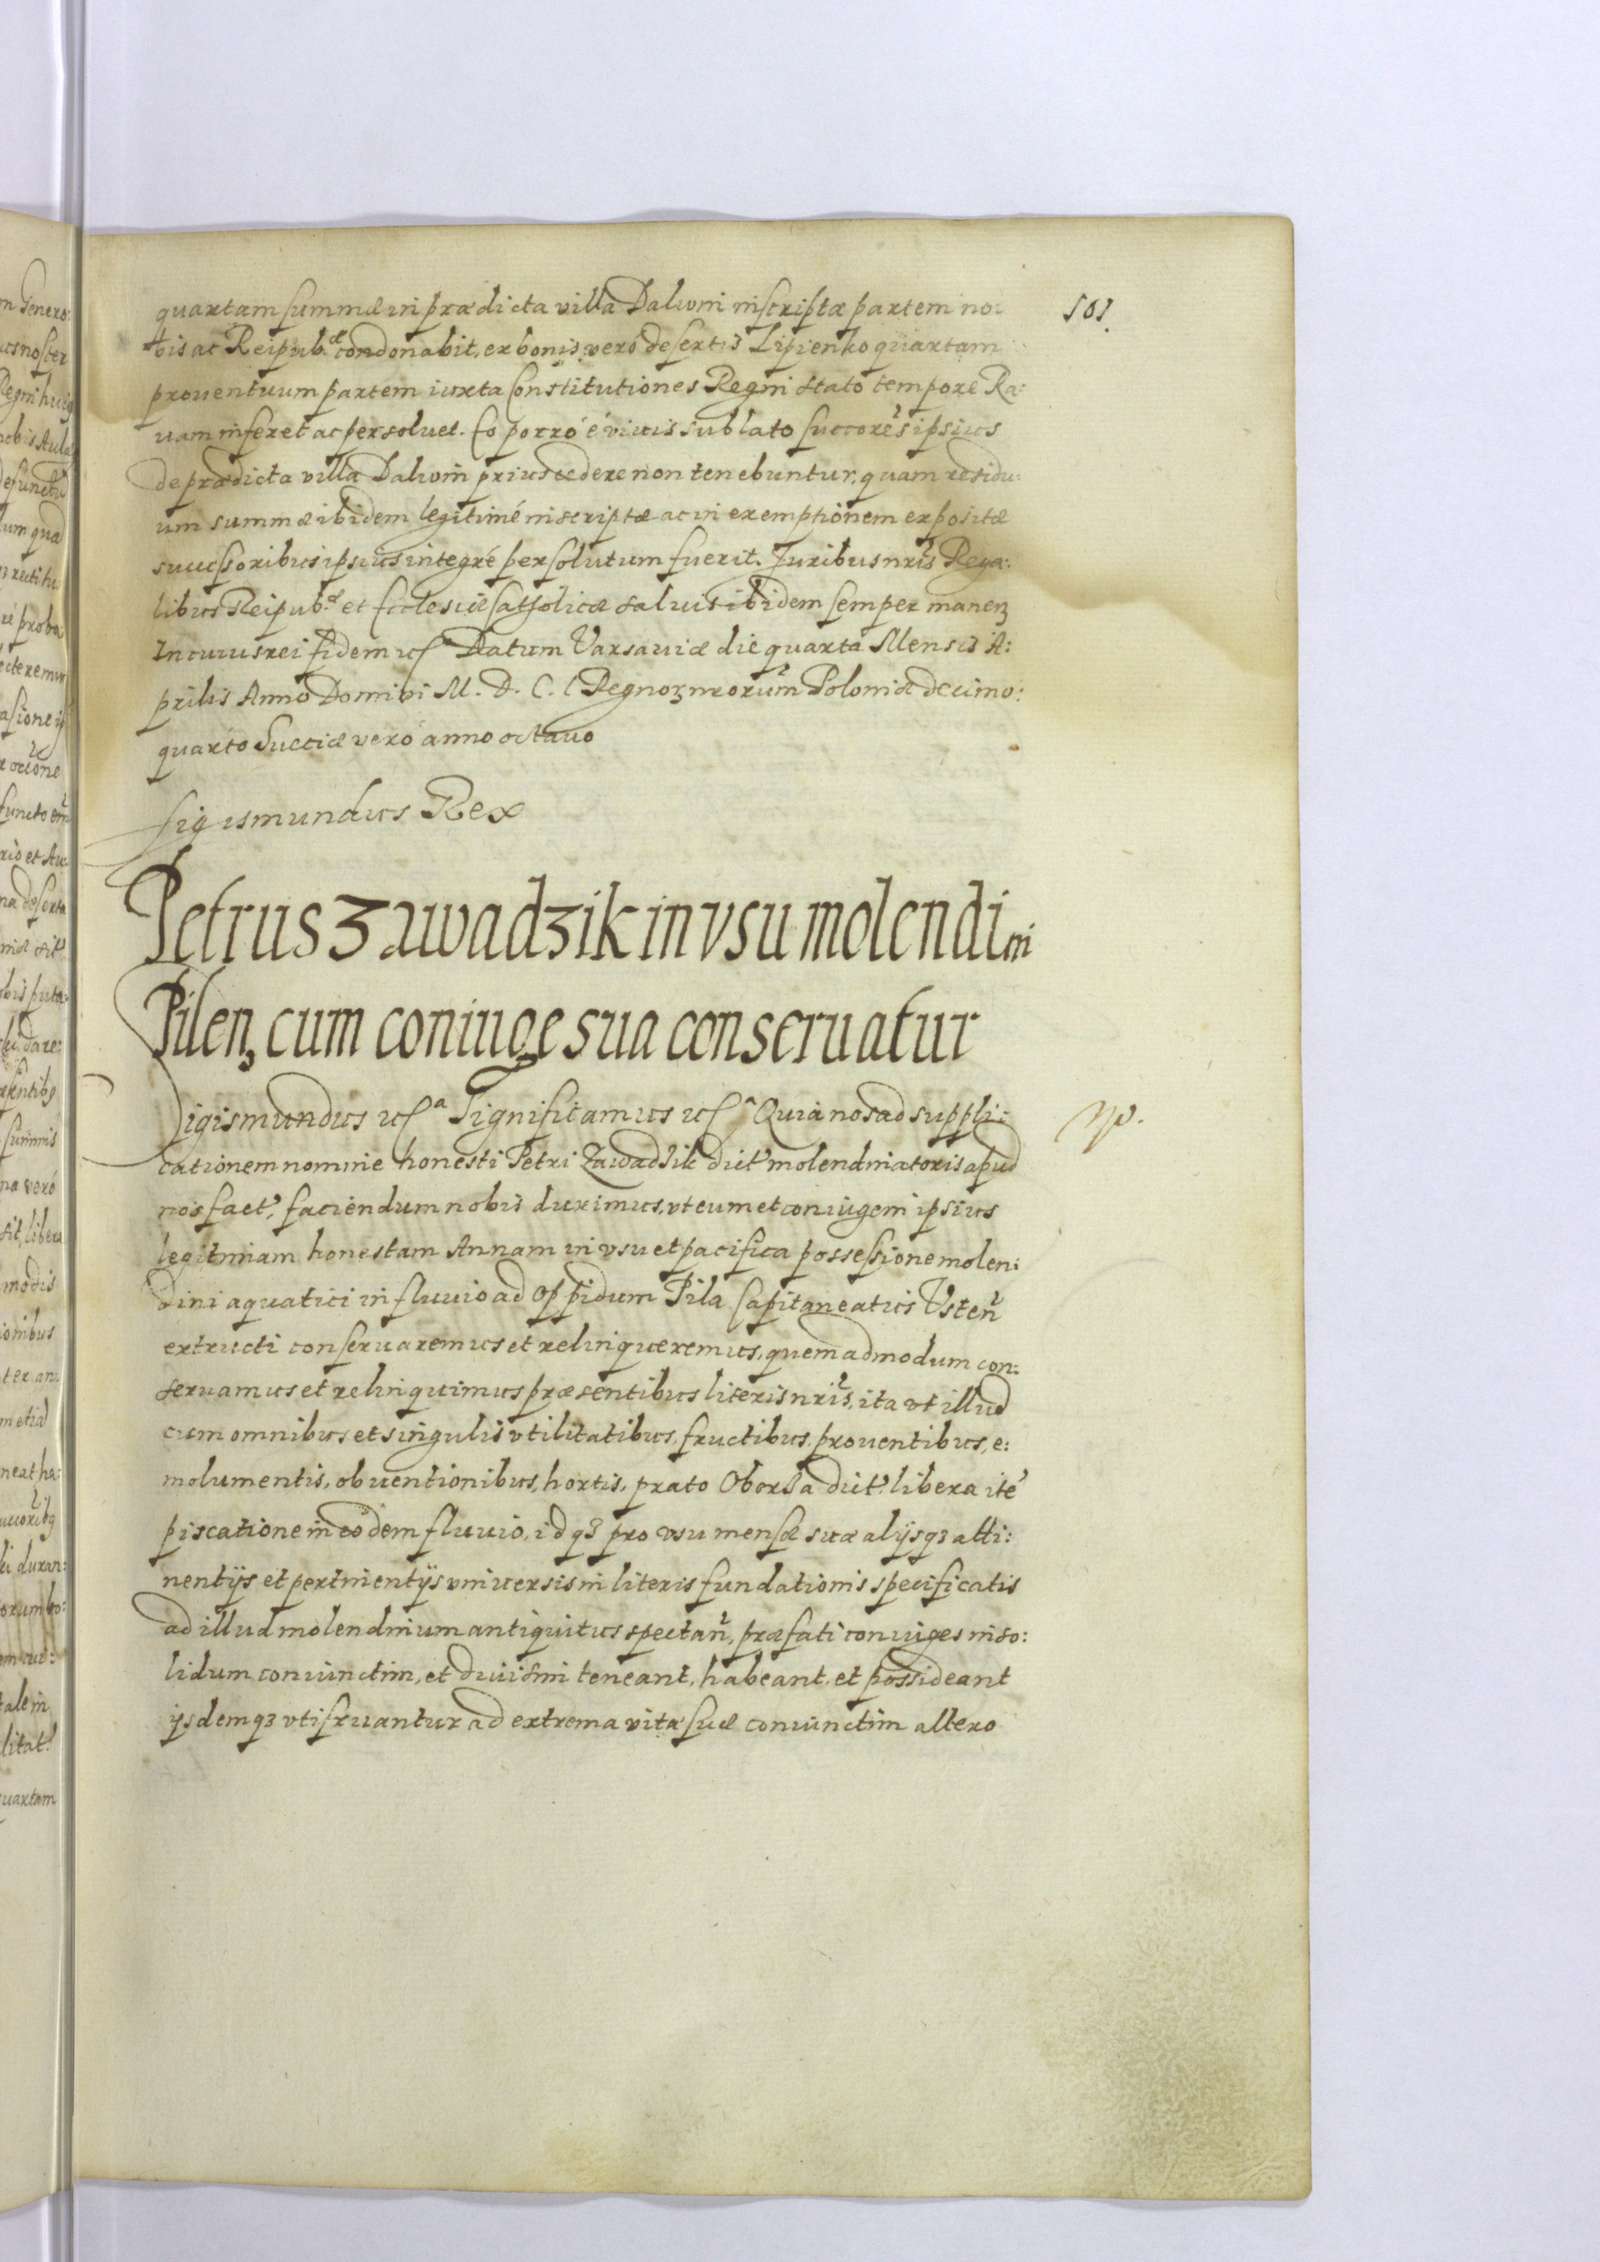 quartam summæ in prædicta villa Daluvni inscriptæ partem no:
101.
bis ac Reipub.æ condonabit, ex bonis vero desertis Lipienko quartam
prouentuum partem iuxta Constitutiones Regni stato tempore Ra:
uam inferet ac persoluet. Eo porró é viuis sublato succorẽs ipsius
de prædicta villa Daluvni prius cedere non tenebuntur, quam residu:
um summæ ibidem legitimé inscriptæ ac in exemptionem expositæ
successoribus ipsius integré persolutum fuerit. Juribus nrĩs Rega:
libus Reipub.æ et Ecclesiæ Catholicæ saluis ibidem semper manenȝ
In cuius rei fidem etc.ª Datum Varsauiæ die quarta Mensis A:
prilis Anno Domini M. D. C. I Regnoȝ nrorum̃ Poloniæ decimo:
quarto Sueciæ veró anno octauo
Sigismundus Rex
Petrus Zawadzik in vsu molendini
Pilenȝ cum coniuge sua conseruatur
Sigismundus etc.ª Significamus etc.ª Quia nos ad suppli:
cationem nomine honesti Petri Zawadzik dict' molendinatoris apud
nos fact', faciendum nobis duximus, vt eum et coniugem ipsius
legitimam honestam Annam in vsu et pacifica possessione molen:
dini aquatici in fluuio ad oppidum Pila Capitaneatus Vsteñ
extructi conseruaremus et relinqueremus, quemadmodum con:
seruamus et relinquimus præsentibus literis nrĩs, ita vt illud
cum omnibus et singulis vtilitatibus, fructibus, prouentibus, e:
molumentis, obuentionibus, hortis, prato Oborza dict' libera ité
piscatione in eodem fluuio, idqȝ pro vsu mensæ suæ alijsqȝ atti:
nentijs et pertinentijs vniuersis in literis fundationis specificatis
ad illud molendinum antiquitus spectañ, præfati coniuges in so:
lidum coniunctim, et diuisim teneant, habeant, et possideant
ijsdemqȝ vti fruantur ad extrema vitæ suæ coniunctim altero